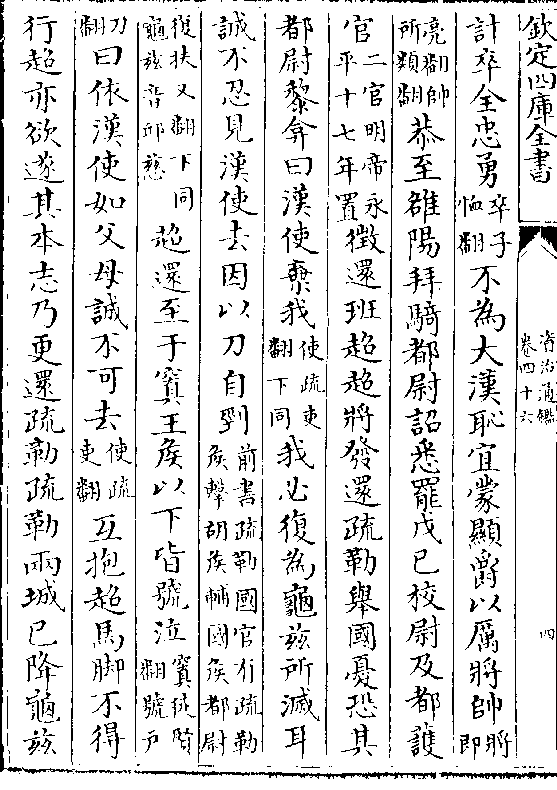 欽定四庫全書
資治通鑑
卷四十六
四
計卒全忠勇卒子恤翻不為大漢恥宜蒙顯爵以厲將帥將即
亮翻帥所類翻恭至雒陽拜騎都尉詔悉罷戊巳校尉及都護
官二官明帝永平十七年置徵還班超超將發還疏勒舉國憂恐其
都尉黎弇曰漢使棄我使疏吏翻下同我必復為龜兹所滅耳
誠不忍見漢使去因以刀自剄前書疏勒國官有疏勒侯擊胡侯輔國侯都尉
復扶又翻下同龜兹音邱慈超還至于窴王侯以下皆號泣窴徒賢翻號户
刀翻曰依漢使如父母誠不可去使疏吏翻互抱超馬脚不得
行超亦欲遂其本志乃更還疏勒疏勒兩城已降龜兹